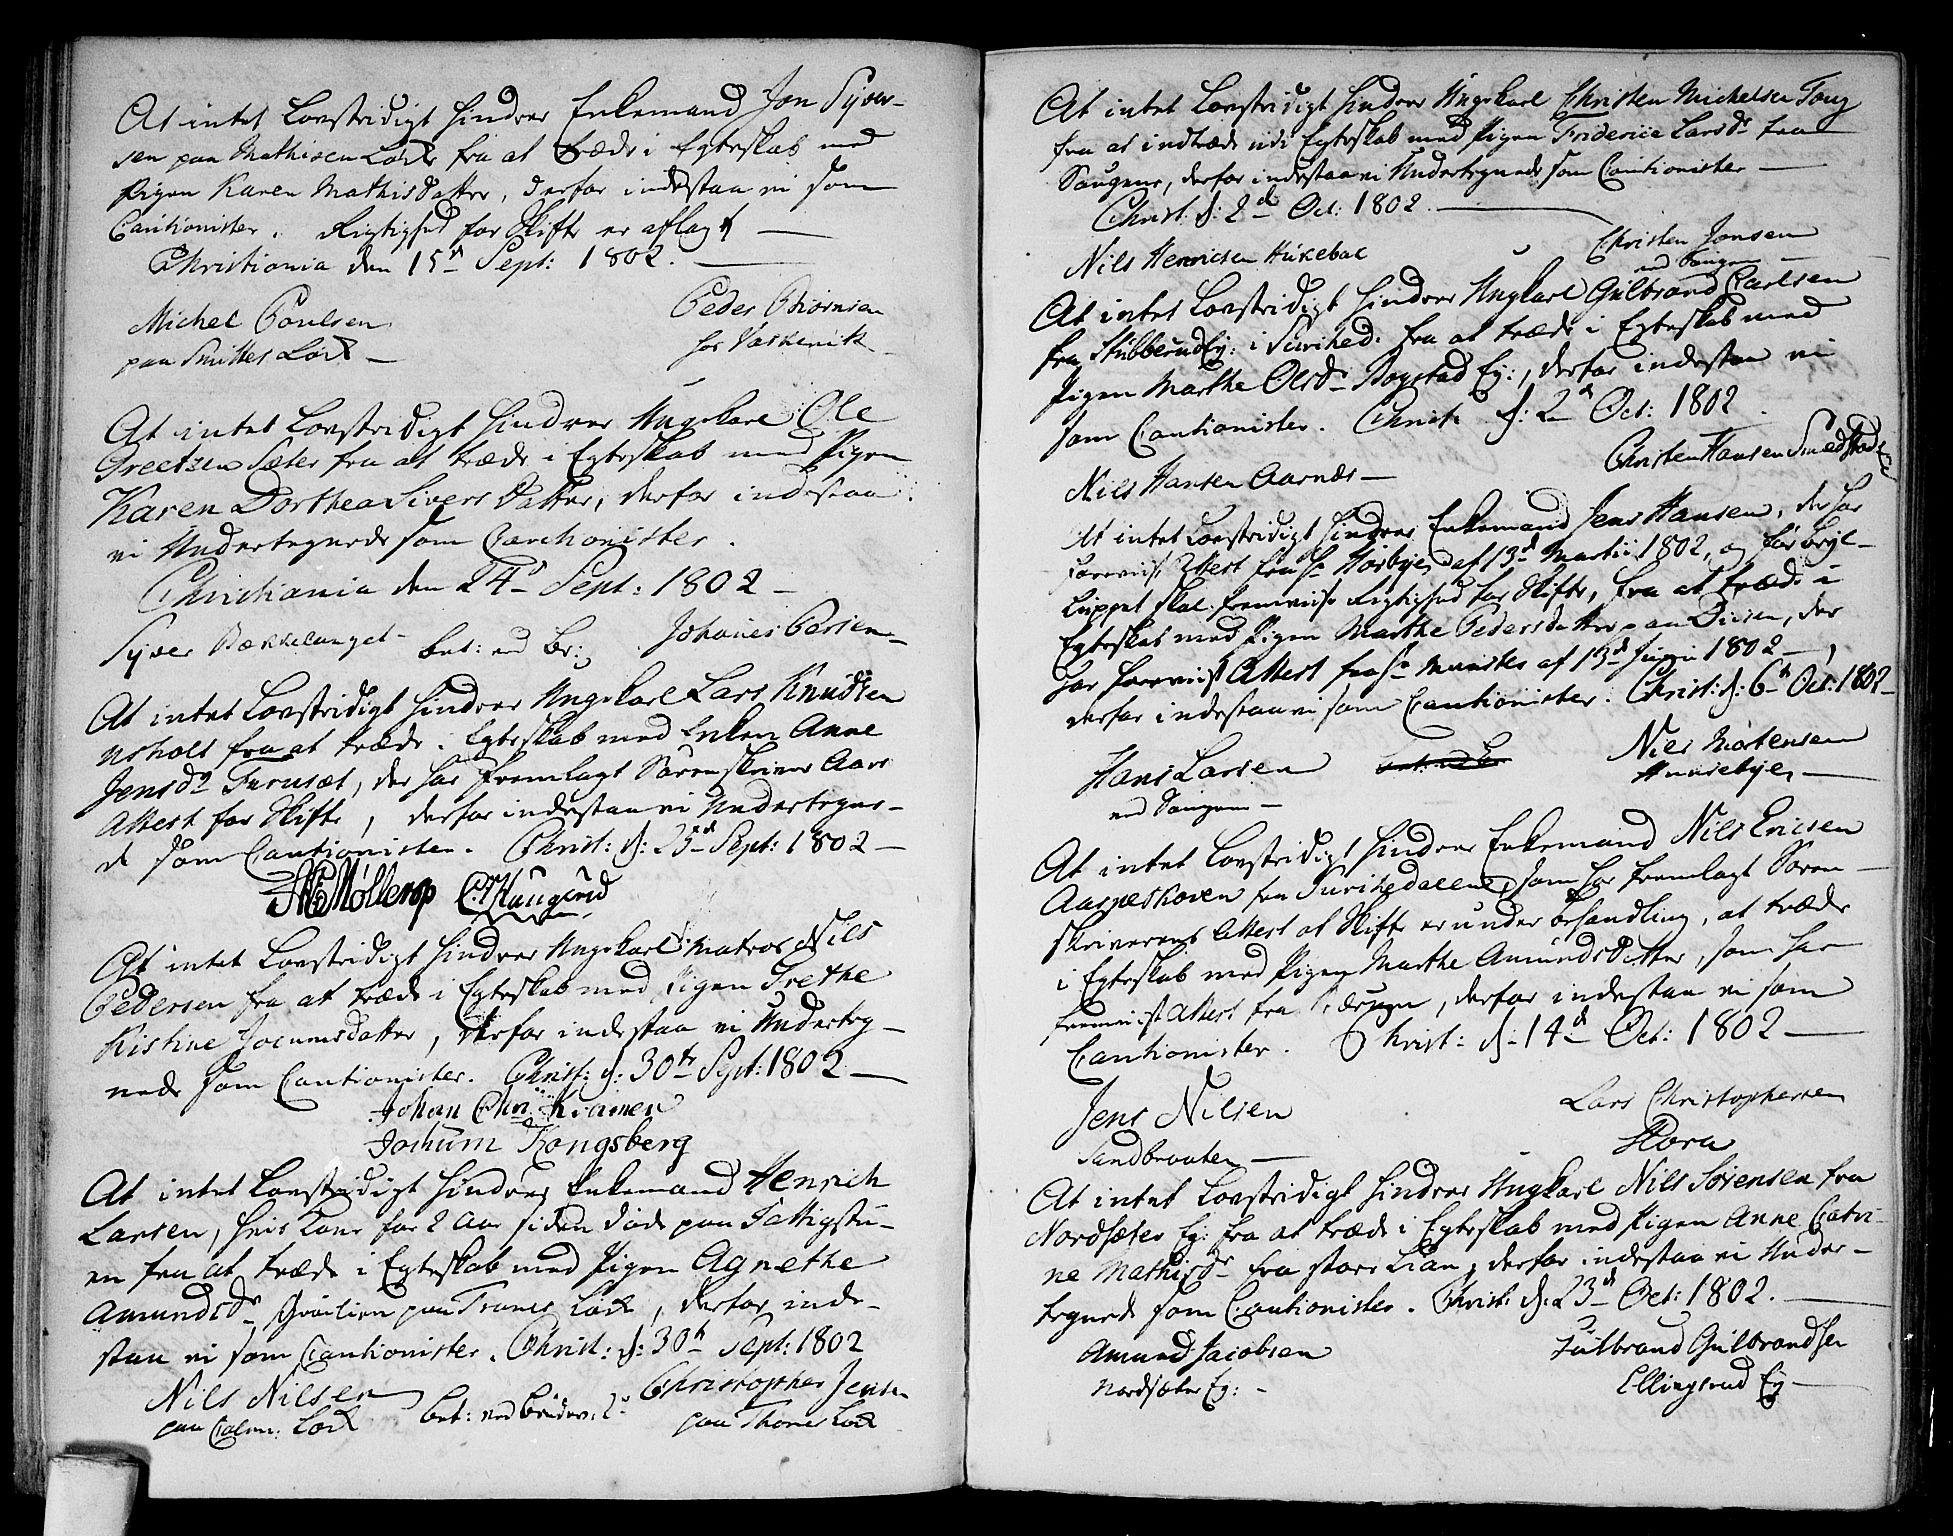 At intet Lovstridigt hindrer Enkemand Jon Syver-
sen paa Mathisen Løck fra at træde i Egteskab med
Pigen Karen Mathisdatter, derfor indestaa vi som
Cautionister. Rigtighed for Skifte er aflagt
Christiania den 15d Sept: 1802.
Michel Poulsen Peder Biørnsen
paa Smittes Løck
At intet Lovstridigt hindrer Ungekarl Ole
Greetsen Sæter fra at træde i Egteskab med Pigen
Karen Dorthea Sivers Datter, derfor indestaa
vi Undertegnede som Cautionister.
Christiania den 24d Sept: 1802
Syver Bækkelanget bet: ved Br: Johanes Persen
At intet Lovstridigt hindrer Ungekarl Lars Knudsen
fra at træde i Egteskab med Enken Anne
Jensdr Furuset, der har fremlagt Sorenskriver Aars
Attest for Skifte, derfor indestaa vi Undertegne-
de som Cautionister. Christ: d: 25d Sept: 1802
Møllerop Haugerud
At intet Lovstridigt hindrer Ungekarl Matros Nils
Pedersen fra at træde i Egteskab med Pigen Grethe
Kistine Jocumsdatter, derfor indestaa vi Underteg-
nede som Cautionister. Christ: d: 30te Sept: 1802
Johan Chr: Kramer
Jochum Kongsberg
At intet Lovstridigt hindrer Enkemand Henrich
Larsen, hvis Kone for 2 Aar siden døde paa Fattigstu-
en fra at træde i Egteskab med Pigen Agnethe
Amundsdr paa Tranes Løck, derfor inde-
staa vi som Cautionister. Christ: d: 30te Sept: 1802
Nils Nilsen bet: ved Christopher Jensen
paa Løck paa Thones Løck
At intet Lovstridigt hindrer Ungekarl Christen Michelsen Toug
fra at indtræde udi Egteskab med Pigen Fridericia Larsdr fra
Saugene, derfor indestaa vi Undertegnede som Cautionister
Christ: d: 2d Oct: 1802.
Nils Henricsen Hukebac Christen Jonsen
ved Saugene
At intet Lovstridigt hindrer Ungkarl Gulbrand Carlsen
fra Stubberud Eg: i Surched. fra at træde i Egteskab med
Pigen Marthe Olsdr Bogstad Eg:, derfor indestaa vi
som Cautionister. Christ: d: 2d Oct: 1802
Nils Hansen Aarnæs Christen Hansen Smedstad
At intet Lovstridigt hindrer Enkemand Jens Hansen, der har
foreviist Attest fra Hr Horbye af 13d Martii 1802, og før Bryl-
luppet skal fremviise Rigtighed for Skifte, fra at træde i
Egteskab med Pigen Marthe Pedersdatter paa Disen, der
har foreviist Attest fra Hr Munster af 13d Junii 1802,
derfor indestaa vi som Cautionister. Christ: d: 6te Oct: 1802
Hans Larsen Niels Mortensen
ved Saugene
At intet Lovstridigt hindrer Enkemand Nils Ericsen
Aaspeskoven fra Surchedalen, som har fremlagt Soren-
skriverens Attest at Skifte er under behandling, at træde
i Egteskab med Pigen Marthe Amunds Datter, som har
fremviist Attest fra Bærum, derfor indestaa vi som
Cautionister. Christ: d: 14d Oct: 1802
Jens Nilsen Lars Christophersen
Sandbraaten
At intet Lovstridigt hindrer Ungkarl Nils Sørensen fra
Nordsæter Eg: fra at træde i Egteskab med Pigen Anne Catri-
ne Mathisdr fra store Lian, derfor indestaa vi Under-
tegnede som Cautionister. Christ: d: 23d Oct: 1802.
Amund Jacobsen Gulbrand Gulbrandsen
Nordsæter Eg: Ellingsrud Eg